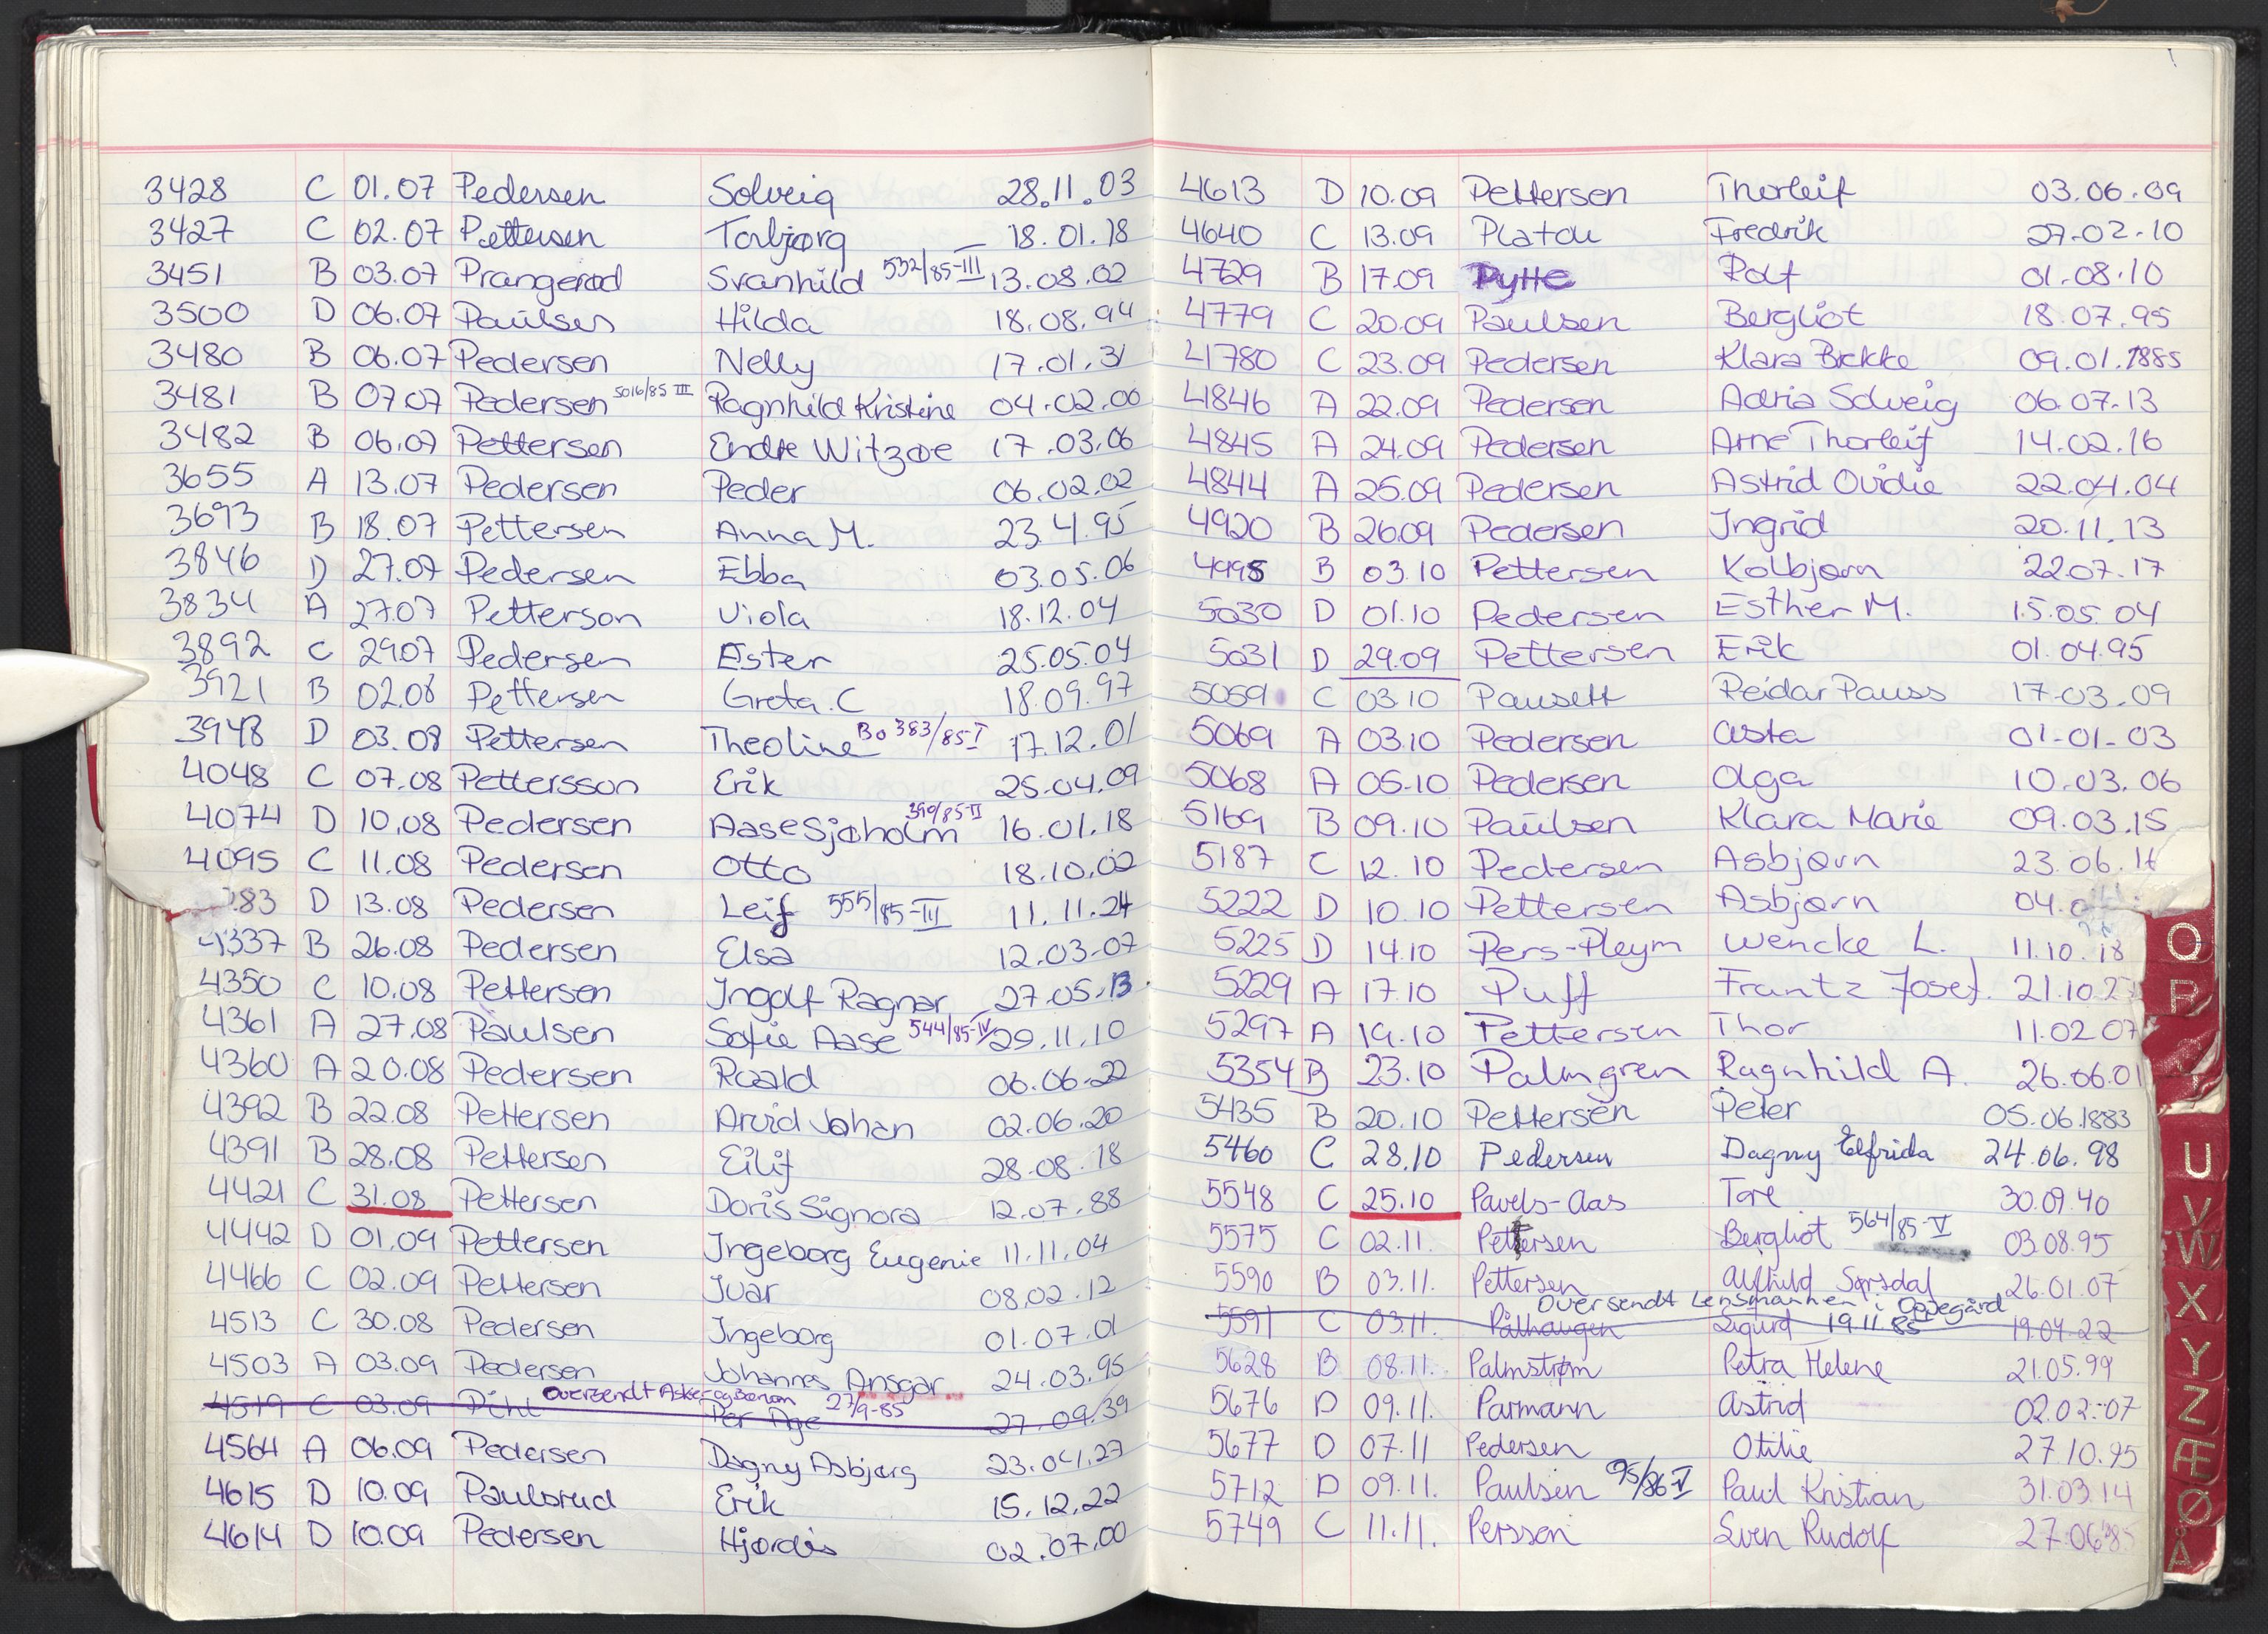 3428 C 01.07 Pedersen Solveig 28.11.03
3427 C 02.07 Pettersen Torbjørg 18.01.18
3451 B 03.07 Prangerød Svanhild 532/85-III 13.08.02
3500 D 06.07 Paulsen Hilda 18.08.94
3480 B 06.07 Pedersen Nelly 17.01.31
3481 B 07.07 Pedersen 5016/85 III Ragnhild Kristine 04.02.00
3482 B 06.07 Pettersen Endre Witzøe 17.03.06
3655 A 13.07 Pedersen Peder 06.02.02
3693 B 18.07 Pettersen Anna M. 23.4.95
3846 D 27.07 Pedersen Ebba 03.05.06
3834 A 27.07 Petterson Viola 18.12.04
3892 C 29.07 Pedersen Ester 25.05.04
3921 B 02.08 Pettersen Greta.C 18.09.97
3948 D 03.08 Pettersen Theoline Bo 383/85-I 17.12.01
4048 C 07.08 Pettersson Erik 25.04.09
4074 D 10.08 Pedersen Aase Sjøholm 390/85-II 16.01.18
4095 C 11.08 Pedersen Otto 18.10.02
83 D 13.08 Pedersen Leif 555/85-III 11.11.24
4337 B 26.08 Pedersen Elsa 12.03.07
4350 C 10.08 Pettersen Ingolf Ragnar 27.05.13
4361 A 27.08 Paulsen Sofie Aase 544/85-IV 29.11.10
4360 A 20.08 Pedersen Roald 06.06.22
4392 B 22.08 Pettersen Arvid Johan 02.06.20
4391 B 28.08 Pettersen Eilif 28.08.18
4421 C 31.08 Pettersen Doris Signora 12.07.88
4442 D 01.09 Pettersen Ingeborg Eugenie 11.11.04
4466 C 02.09 Pettersen Ivar 08.02.12
4513 C 30.08 Pedersen Ingeborg 01.07.01
4503 A 03.09 Pedersen Johannes Ansgar 24.03.95
4519 C 03.09 Pihl Oversendt Asker og Bærum 27/9-85 Per Åge 27.09.39
4564 A 06.09 Pedersen Dagny Asbjørg 23.04.27
4615 D 10.09 Paulsrud Erik 15.12.22
4614 D 10.09 Pedersen Hjørdis 02.07.00
4613 D 10.09 Pettersen Thorleif 03.06.09
4640 C 13.09 Platou Fredrik 27.02.10
4729 B 17.09 Pytte Rolf 01.08.10
4779 C 20.09 Paulsen Bergliot 18.07.95
4780 C 23.09 Pedersen Klara Bekke 09.01.1885
4846 A 22.09 Pedersen Adria Solveig 06.07.13
4845 A 24.09 Pedersen Arne Thorleif 14.02.16
4844 A 25.09 Pedersen Astrid Ovidie 22.04.04
4920 B 26.09 Pedersen Ingrid 20.11.13
4995 B 03.10 Pettersen Kolbjørn 22.07.17
5030 D 01.10 Pedersen Esther M. 15.05.04
5031 D 29.09 Pettersen Erik 01.04.95
5059 C 03.10 Pausett Reidar Pauss 17.03.09
5069 A 03.10 Pedersen Asta 01-01-03
5068 A 05.10 Pedersen Olga 10.03.06
5169 B 09.10 Paulsen Klara Marie 09.03.15
5187 C 12.10 Pedersen Asbjørn 23.06.
5222 D 10.10 Pettersen Asbjørn 04.
5225 D 14.10 Pers-Pleym Wencke L. 11.10.18
5229 A 17.10 Puff Frantz Josef. 21.10.2
5297 A 19.10 Pettersen Thor 11.02.07
5354 B 23.10 Palmgren Ragnhild A. 26.06.01
5435 B 20.10 Pettersen Peter 05.06.1883
5460 C 28.10 Pedersen Dagny Elfrida 24.06.98
5548 C 25.10 Pavels-Aas Tore 30.09.40
5575 C 02.11. Pettersen Bergliot 564/85-V 03.08.95
5590 B 03.11. Pettersen Alfhild Sørsdal 26.01.07
Oversendt Lensmannen i Oppegård
5591 C 03.11. Pålhaugen Sigurd 19.11.85 19.09.22
5628 B 08.11. Palmstrøm Petra Helene 21.05.99
5676 D 09.11. Parmann Astrid 02.02.07
5677 D 07.11 Pedersen Otilie 27.10.95
5712 D 09.11. Paulsen 95/86-V Paul Kristian 31.03.14
5749 C 11.11. Persson Sven Rudolf 27.06.85
O
P
U
V
W
X
Y
Z
Æ
Ø
Å